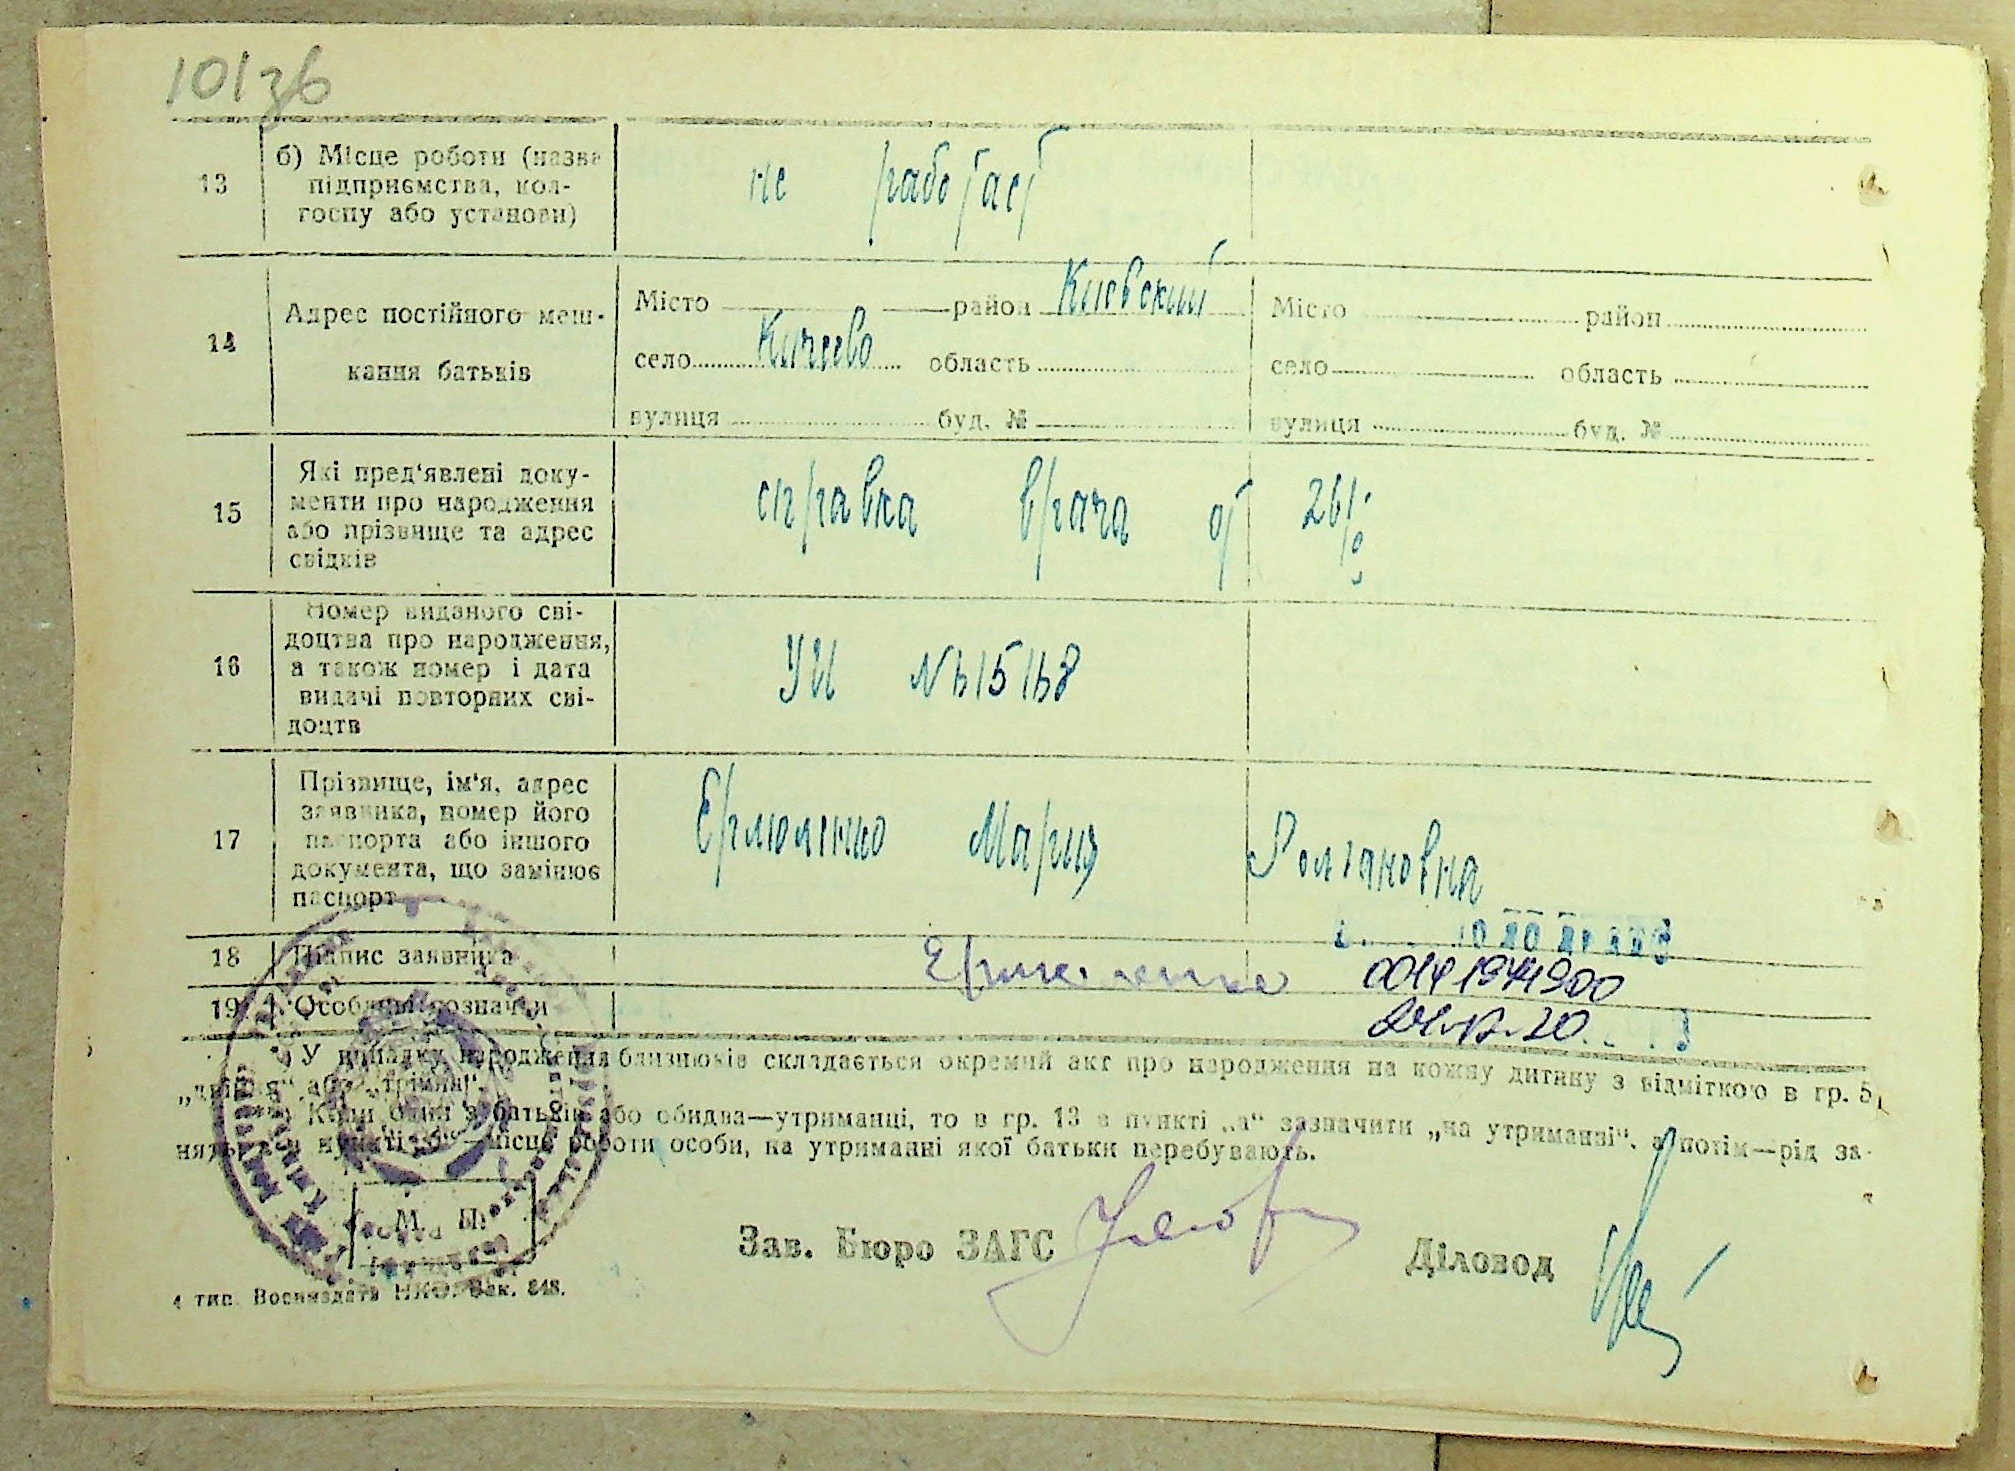 101зв
13
б) Місце роботи (назва
підприємства, кол-
госпу або установи)
не работает
14
Адрес постійного меш-
кання батьків
Місто район Киевский
село Кичеево область
вулиця буд. №
Місто район
село область
вулиця буд. №
15
Які пред‘явлені доку-
менти про народження
або прізвище та адрес
свідків
справка врача от 26/
16
Номер виданого сві-
доцтва про народження,
а також номер і дата
видачі повторних сві-
доцтв
УИ №
17
Прізвище, ім‘я, адрес
заявника, номер його
паспорта або іншого
документа, що замінює
паспорт
Ермоленко Мария Романовна
18
Підпис заявника
Ермоленко
00141971900
19
Особливі зозначки
У випадку народження близнюків складається окремий акт про народження на кожну дитину з відміткою в гр. 5,
„двійня“ або „трійня“.
Коли один з батьків або обидва—утриманці, то в гр. 13 в пункті „а“ зазначити „на утриманні“, а потім—рід за-
нять, а в пункті „б“—місце роботи особи, на утриманні якої батьки перебувають.
М. П.
Зав. Бюро ЗАГС
Діловод
4 тип. Воениздата НКО. Зак. 848.